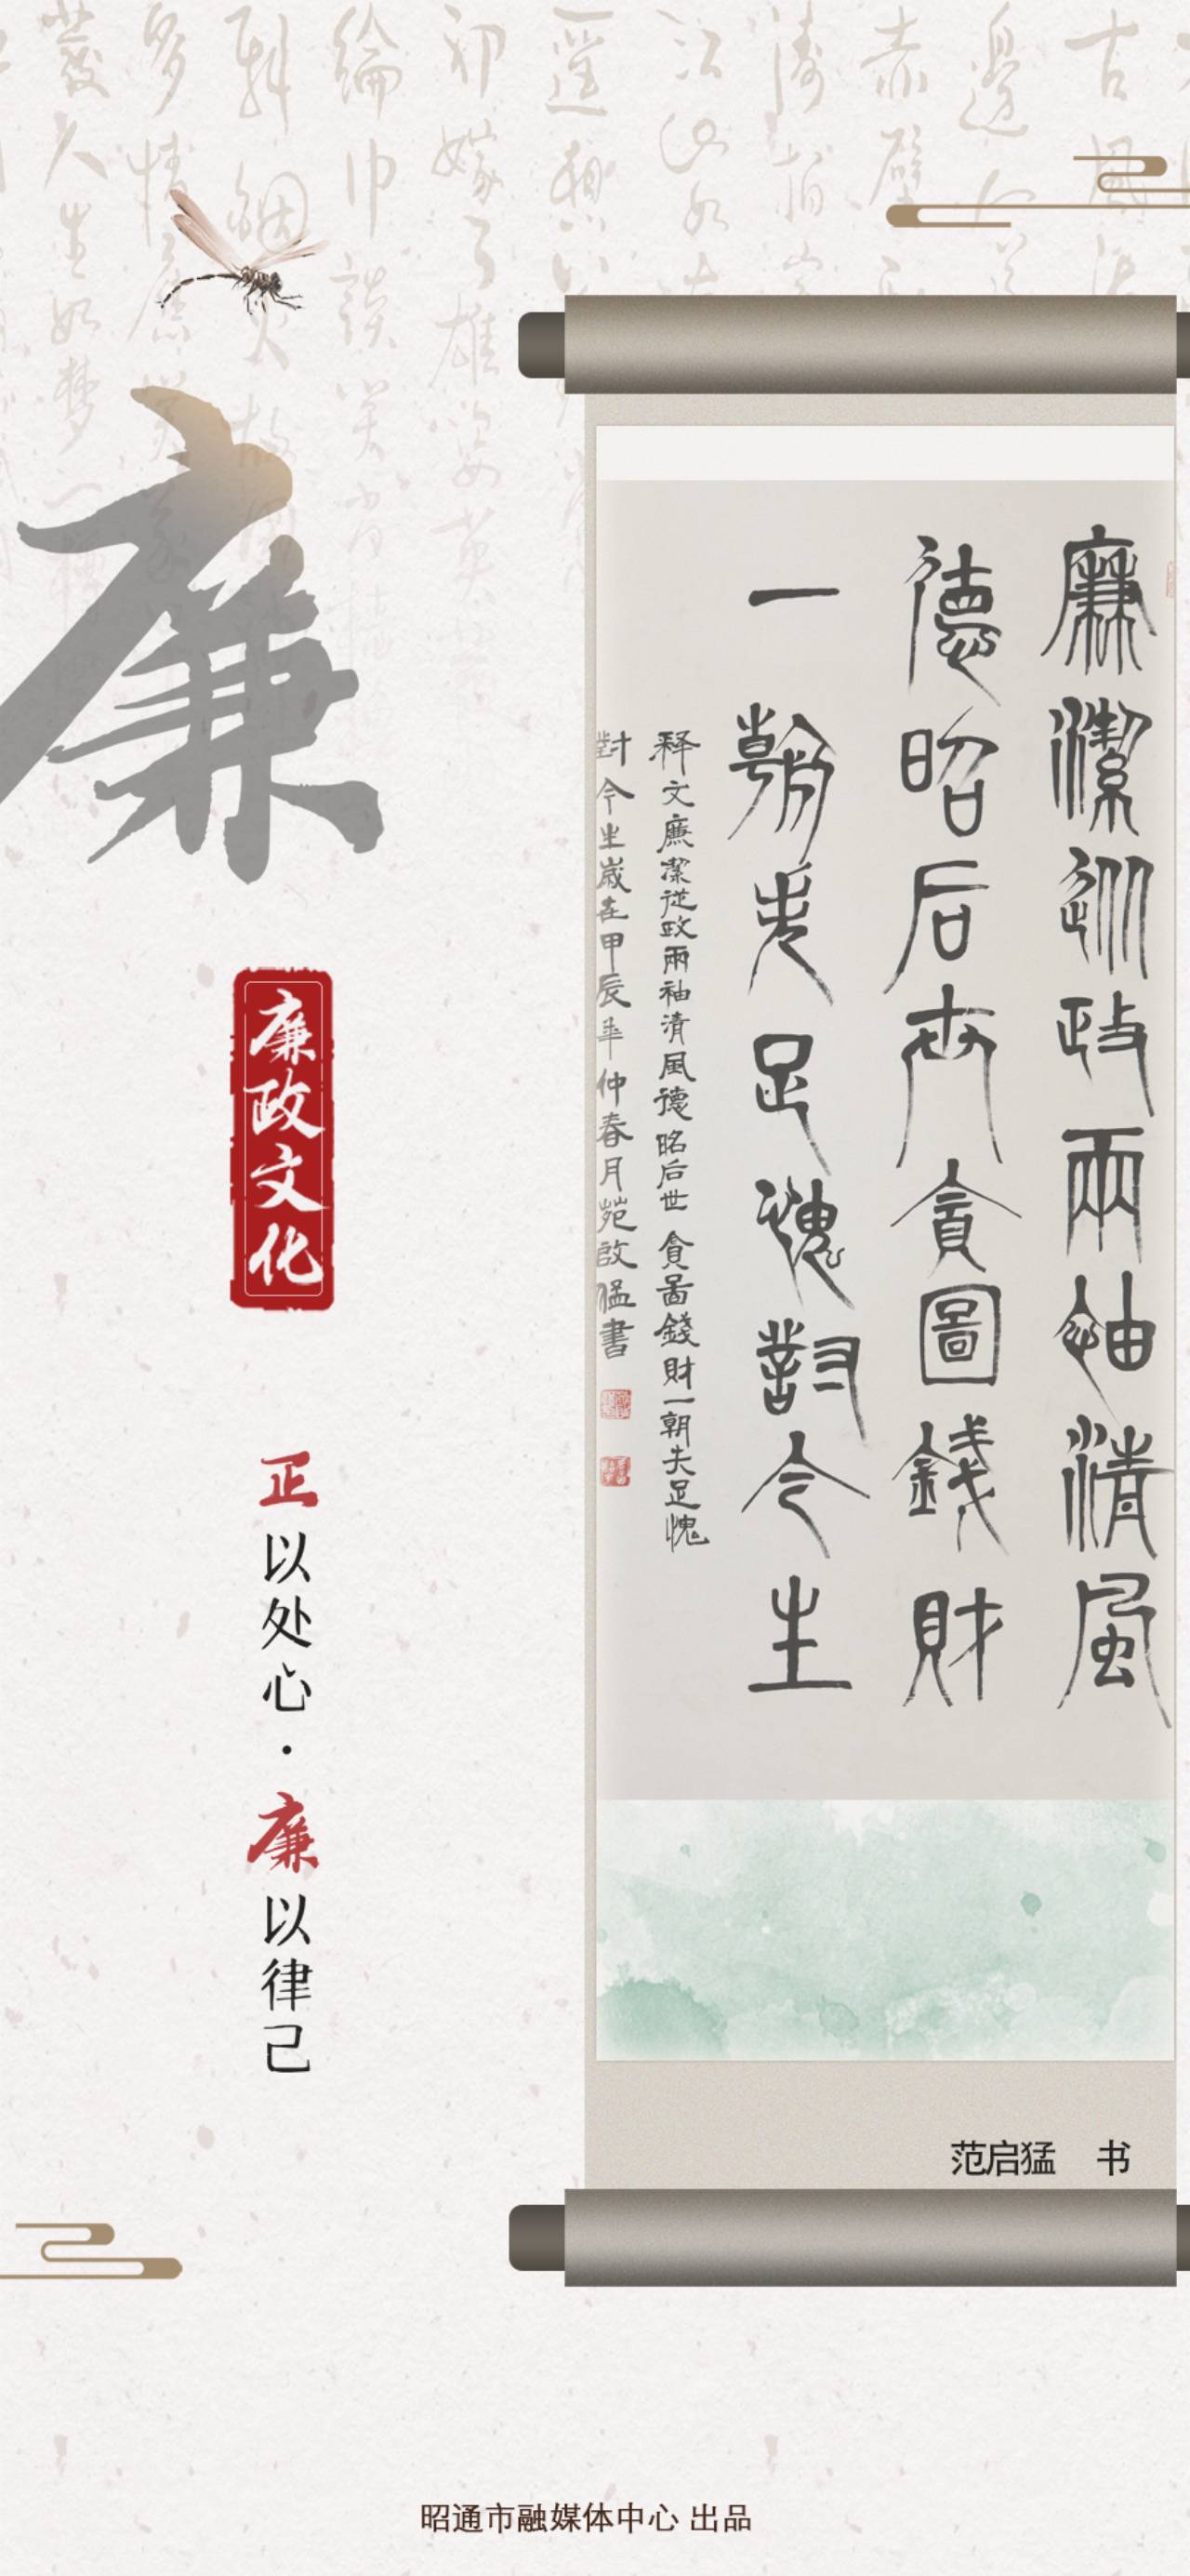 廉
廉政文化
正以处心·廉以律己
廉潔從政兩袖清風
德昭后世貪圖錢財
一朝失足愧對今生
释文廉潔從政兩袖清風德昭后世貪啚錢財一朝失足愧
對今生歲在甲辰年仲春月范啟猛書
范启猛 书
昭通市融媒体中心 出品